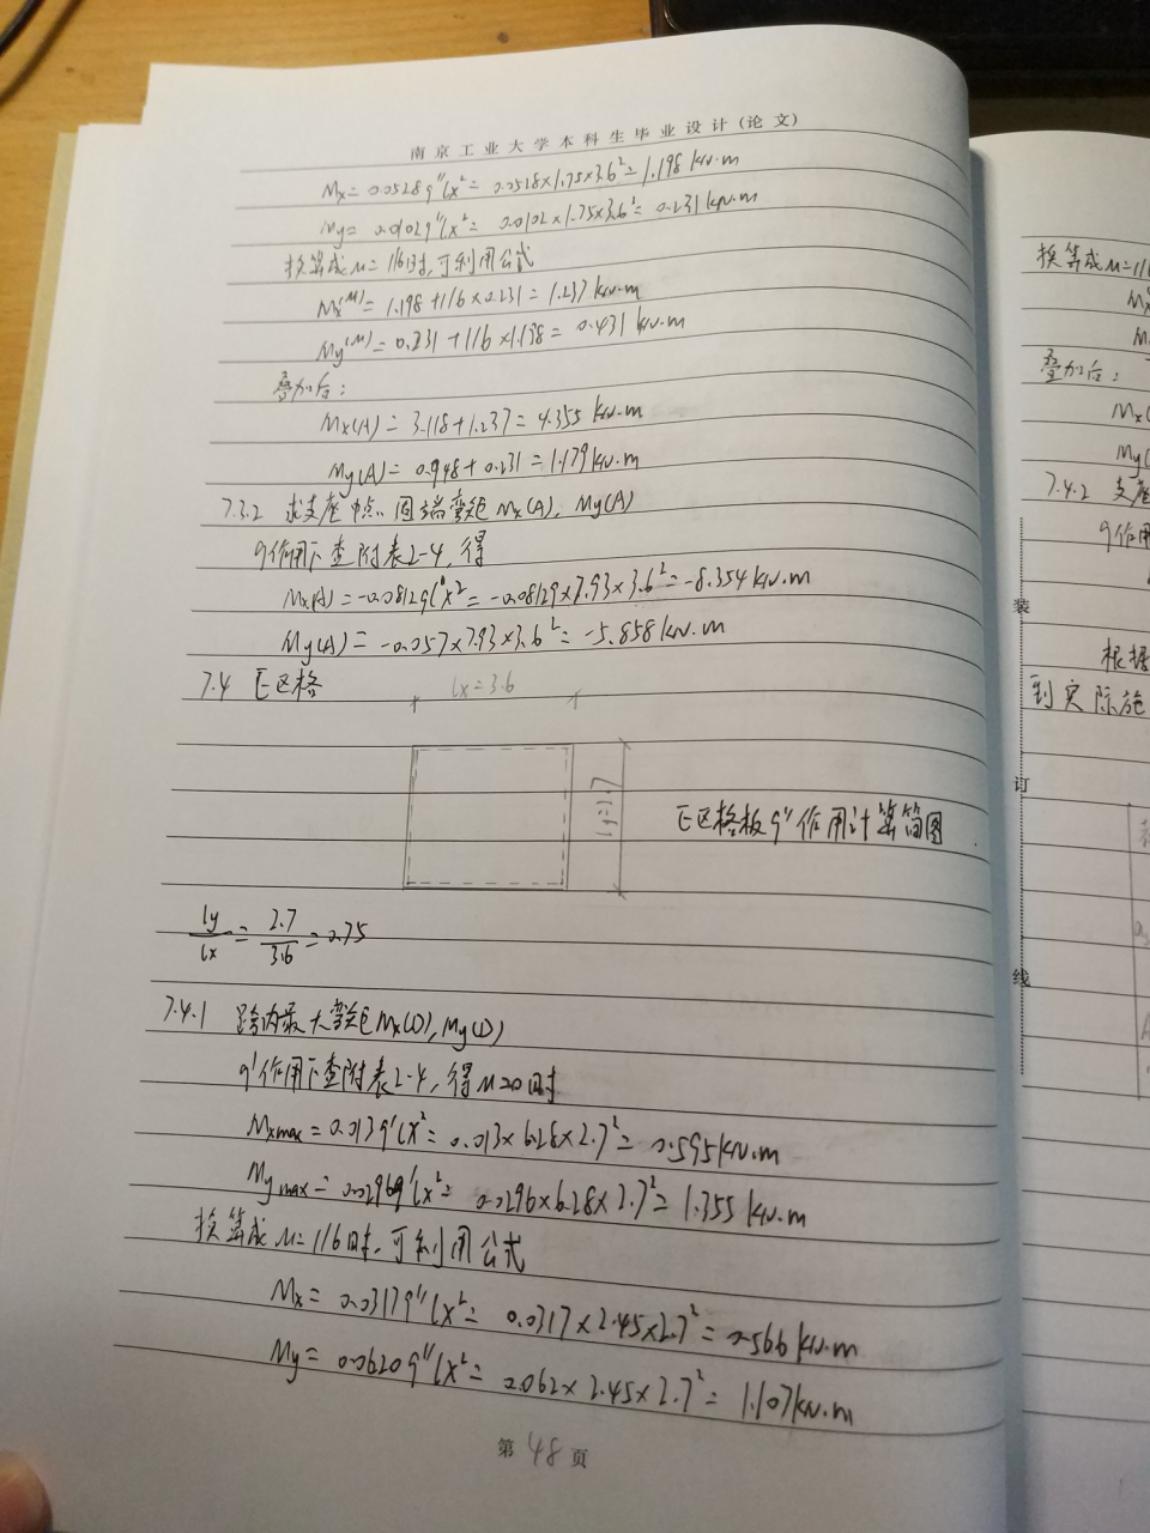 南京工业大学本科生毕业设计(论文)
Mx=0.0528q''lx²=0.0528×1.75×3.6²=1.198kN·m
My=0.0102q''lx²=0.0102×1.75×3.6²=0.231kN·m
换算成μ=1/6时,可利用公式
Mx^(μ)=1.198+1/6×0.231=1.237kN·m
My^(μ)=0.231+1/6×1.198=0.431kN·m
叠加后:
Mx(A)=3.118+1.237=4.355kN·m
My(A)=0.948+0.231=1.179kN·m
7.3.2 求支座中点固端弯矩Mx(A),My(A)
q作用下查附表2-4,得
Mx(A)=-0.0812qlx²=-0.08129×7.93×3.6²=-8.354kN·m
My(A)=-0.057×7.93×3.6²=-5.858kN·m
7.4 E区格
lx=3.6
ly=2.7
E区格板q''作用计算简图
ly/lx=2.7/3.6=0.75
7.4.1 跨内最大弯矩Mx(D),My(D)
q'作用下查附表2-4,得μ=0时
Mxmax=0.013q'lx²=0.013×6.28×2.7²=0.595kN·m
Mymax=0.0296q'lx²=0.0296×6.28×2.7²=1.355kN·m
换算成μ=1/6时,可利用公式
Mx=0.0317q''lx²=0.0317×2.45×2.7²=0.566kN·m
My=0.0620q''lx²=0.062×2.45×2.7²=1.107kN·m
第48页
换算成μ=1/6
叠加后:
Mx(
My(
7.4.2 支座
q作用
根据
到实际施
装
订
线